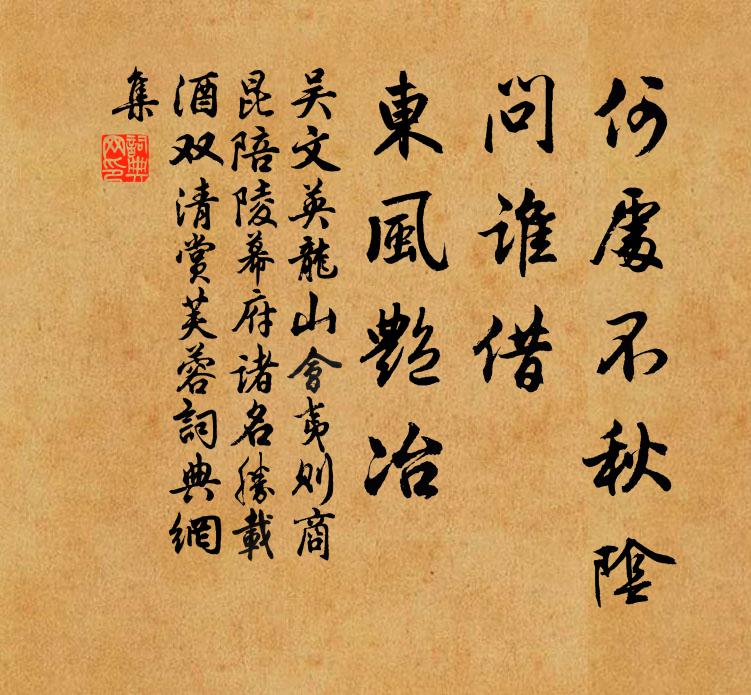 何處不秋陰
問誰借
東風艷冶
吴文英龍山會夷则商
昆陪陵幕府諸名勝載
酒双清赏芙蓉詞典網
集
詞典